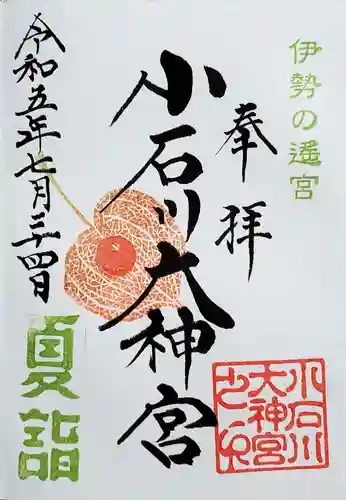 伊勢の遙宮
奉拝
小石川大神宮
小石川
大神宮
之印
令和五年七月二十四日
夏詣